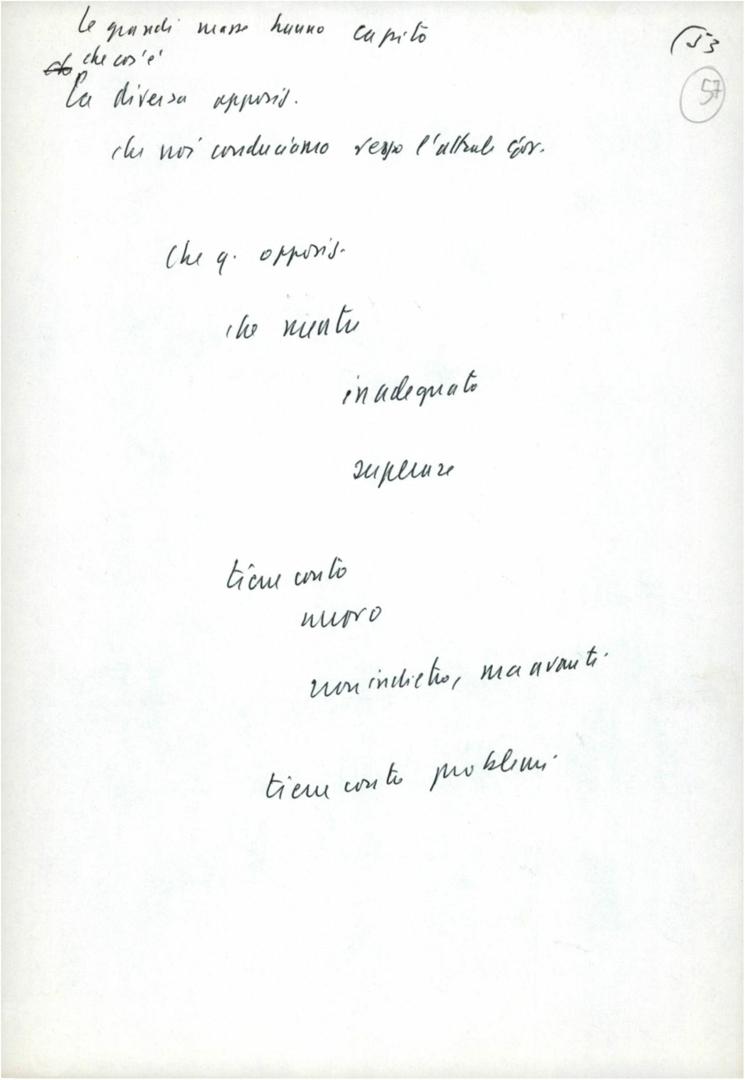 le grandi masse hanno capito
53
che cos'è
57
la diversa opposiz.
che noi conduciamo verso l'attuale gov.
che q. opposiz.
che mentre
inadeguato
superare
tiene conto
nuovo
non indietro, ma avanti
tiene conto problemi